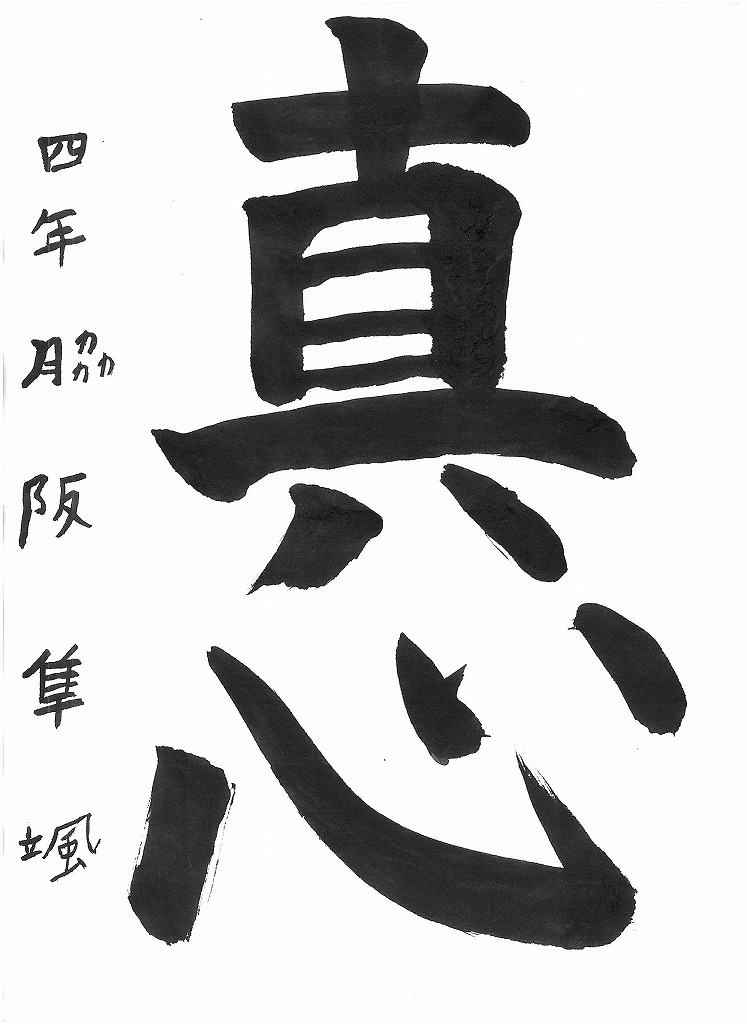 真心
四年 脇阪 隼颯